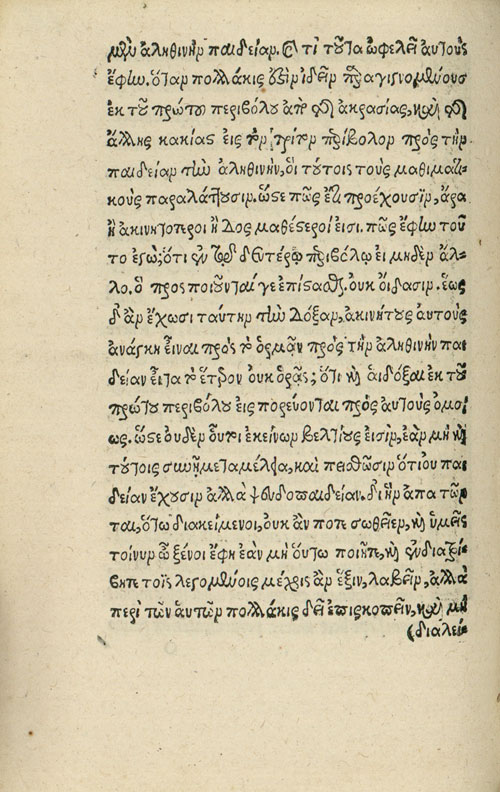 μὲν ἀληθινὴν παιδείαν. καὶ τί τοῦτο ὠφελεῖ αὐτοὺς
ἔφην. ὅταν πολλάκις ἔξεστιν ἰδεῖν παραγινομένους
ἐκ τοῦ πρώτου περιβόλου ἀπὸ τῆς ἀκρασίας, καὶ τῆς
ἄλλης κακίας εἰς τὸν τρίτον περίβολον πρὸς τὴν
παιδείαν τὴν ἀληθινὴν, οἳ τούτοις τοὺς μαθιματι-
κοὺς παραλάττουσιν. ὥστε πῶς ἔτι προέχουσιν, ἄρα
ἢ ἀκινητότεροι ἢ δυσμαθέστεροί εἰσι. πῶς ἔφην τοῦ
το ἐγώ; ὅτι ἐν τῷ δευτέρῳ περιβόλῳ εἰ μηδὲν ἄλ-
λο. ὃ προσποιοῦνταί γε ἐπίστασθαι. οὐκ οἴδασιν. ἕως
δ' ἂν ἔχωσι ταύτην τὴν δόξαν, ἀκινήτους αὐτοὺς
ἀνάγκη εἶναι πρὸς τὸ ὁρμᾶν πρὸς τὴν ἀληθινὴν παι
δείαν εἶτα τὸ ἕτερον οὐκ ὁρᾷς; ὅτι καὶ αἱ δόξαι ἐκ τοῦ
πρώτου περιβόλου εἰσπορεύονται πρὸς αὐτοὺς ὁμοί
ως. ὥστε οὐδὲν οὗτοι ἐκείνων βελτίους εἰσὶν, ἐὰν μὴ καὶ
τούτοις συνῇ μεταμέλεια, καὶ πεισθῶσιν ὅτι οὐ παι
δείαν ἔχουσιν ἀλλὰ ψευδοπαιδείαν. δι' ἣν ἀπατῶν
ται, οὕτω διακείμενοι, οὐκ ἄν ποτε σωθεῖεν, καὶ ὑμεῖς
τοίνυν ὦ ξένοι ἔφη ἐὰν μὴ οὕτω ποιῆτε, καὶ ἐνδιατρί
βητε τοῖς λεγομένοις μέχρις ἂν ἕξιν, λαβεῖν, ἀλλὰ
περὶ τῶν αὐτῶν πολλάκις δεῖ ἐπισκοπεῖν, καὶ μὴ
διαλεί-